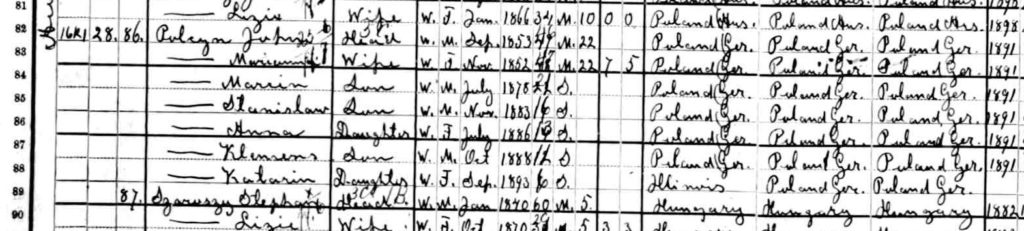 81 — Lizie Wife W. F. Jan. 1866 34 M. 10 0 0 Poland Aus. Poland Aus. Poland Aus. 1898
82 28. 86. Polcyn John Head W. M. Sep. 1853 M. 22 Poland Ger. Poland Ger. Poland Ger. 1891
83 — Wife W. F. Nov. 1852 M. 22 7 5 Poland Ger. Poland Ger. Poland Ger. 1891
84 — Marcin Son W. M. July 1878 21 S. Poland Ger. Poland Ger. Poland Ger. 1891
85 — Stanislaw Son W. M. Nov. 1883 16 S. Poland Ger. Poland Ger. Poland Ger. 1891
86 — Anna Daughter W. F. July 1886 S. Poland Ger. Poland Ger. Poland Ger. 1891
87 — Klemens Son W. M. Oct 1888 S Poland Ger. Poland Ger. Poland Ger. 1891
88 — Katarin Daughter W. F. Sep. 1893 6 S. Illinois Poland Ger. Poland Ger.
89 87. Stephan Head W. M. Jan 1840 60 M. 5 Hungary Hungary Hungary 1882
90 — Lizie Wife W. F. Oct 1870 M 5 3 3